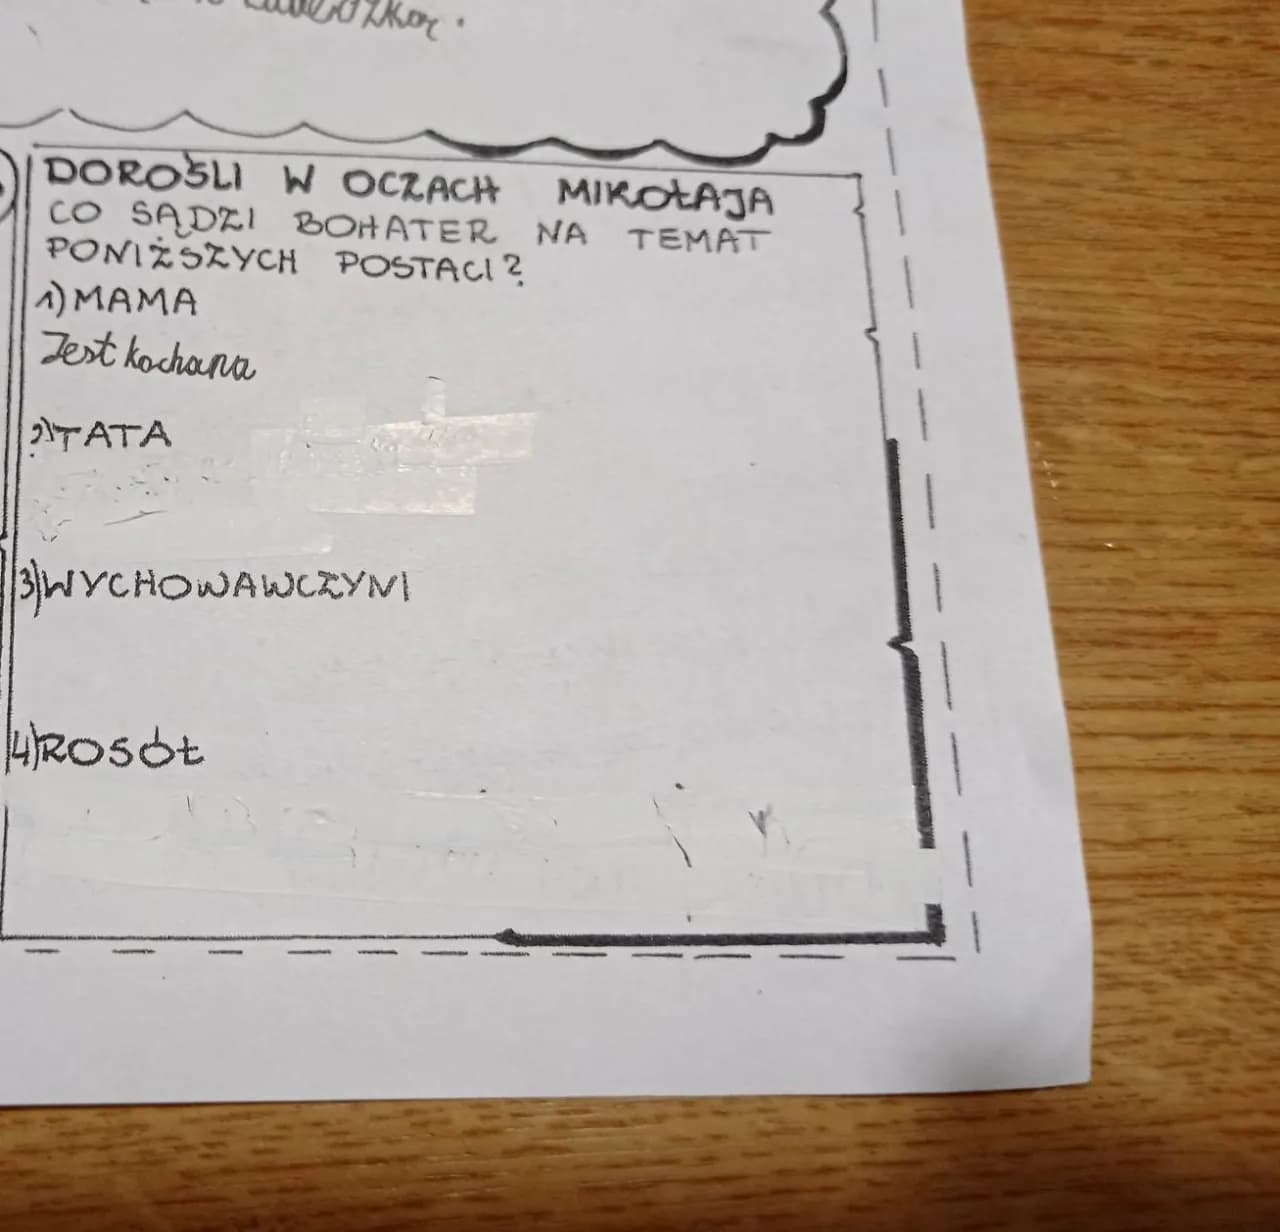 DOROŚLI W OCZACH MIKOŁAJA
CO SĄDZI BOHATER NA TEMAT
PONIŻSZYCH POSTACI?
1) MAMA
Jest kochana
2) TATA
3) WYCHOWAWCZYNI
4) ROSÓŁ